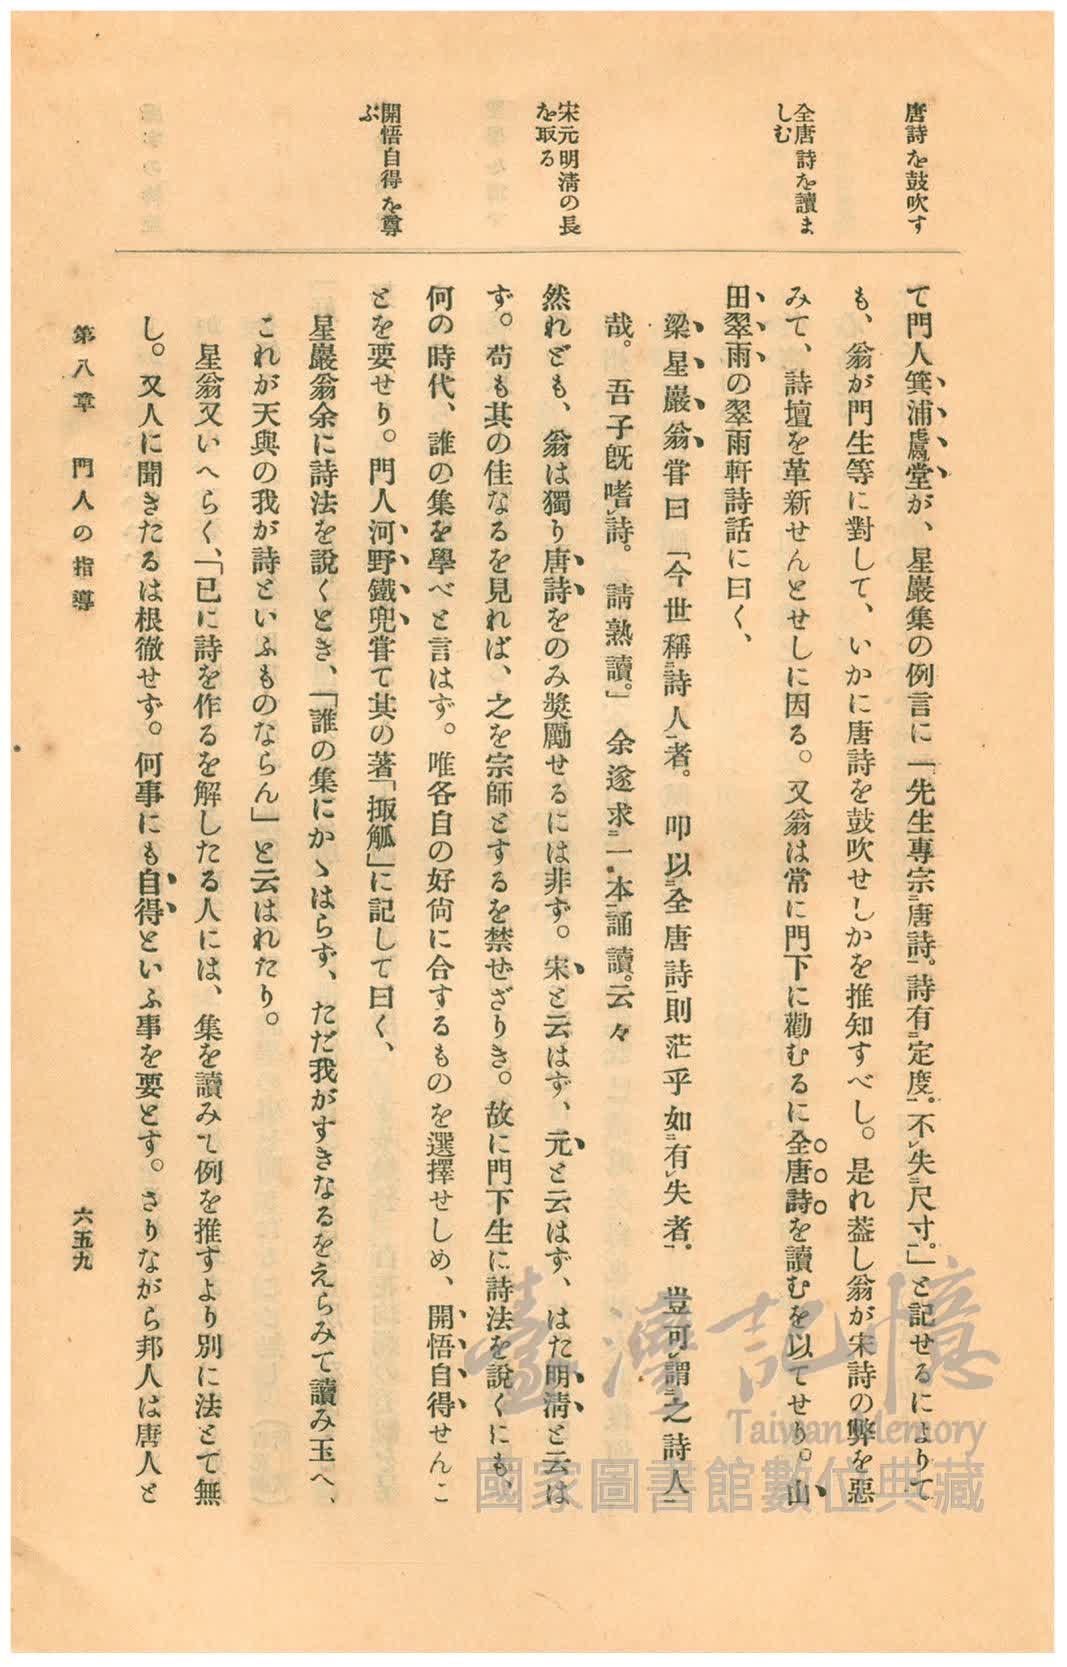 唐詩を鼓吹す
全唐詩を讀ま
しむ
宋元明清の長
を取る
開悟自得を尊
ぶ
て門人箕浦虞堂が、星巖集の例言に「先生專宗二唐詩一。詩有二定度一。不レ失二尺寸一。」と記せるによりて
も、翁が門生等に對して、いかに唐詩を鼓吹せしかを推知すべし。是れ蓋し翁が宋詩の弊を惡
みて、詩壇を革新せんとせしに因る。又翁は常に門下に勸むるに全唐詩を讀むを以てせり。山
田翠雨の翠雨軒詩話に曰く、
梁星巖翁甞曰「今世稱二詩人一者。叩以二全唐詩一則茫乎如二有レ失者一。豈可レ謂二之詩人一
哉。吾子旣嗜レ詩。請熟讀。」余遂求二一本一誦讀。云々
然れども、翁は獨り唐詩をのみ奬勵せるには非ず。宋と云はず、元と云はず、はた明淸と云は
ず。苟も其の佳なるを見れば、之を宗師とするを禁ぜざりき。故に門下生に詩法を說くにも、
何の時代、誰の集を學べと言はず。唯各自の好尙に合するものを選擇せしめ、開悟自得せんこ
とを要せり。門人河野鐵兜甞て其の著「掫觚」に記して曰く、
星巖翁余に詩法を說くとき、「誰の集にかゝはらず、ただ我がすきなるをえらみて讀み玉へ、
これが天與の我が詩といふものならん」と云はれたり。
星翁又いへらく、「已に詩を作るを解したる人には、集を讀みて例を推すより別に法とて無
し。又人に聞きたるは根徹せず。何事にも自得といふ事を要とす。さりながら邦人は唐人と
第八章 門人の指導
六五九
臺灣記憶
Taiwan Memory
國家圖書館數位典藏